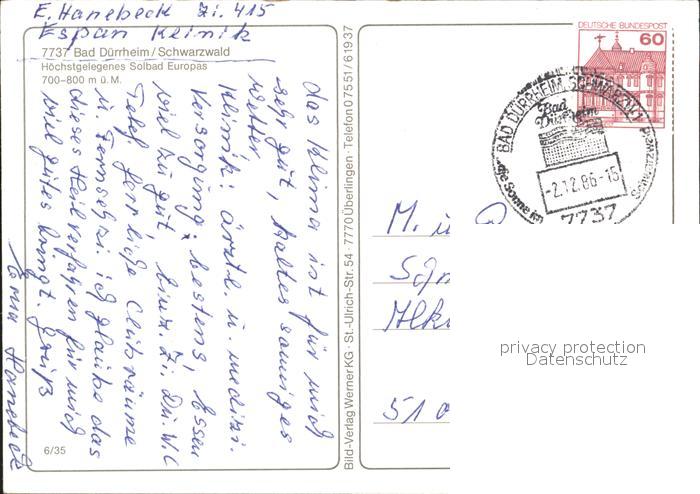 E. Hanebeck Zi. 415
Espan Klinik
7737 Bad Dürrheim/Schwarzwald
Höchstgelegenes Solbad Europas
700–800 m ü. M.
das Klima ist für mich
sehr gut, kaltes sonniges
Wetter
Klinik: ärztl. u. medizi.
Versorgung: bestens, Essen
viel zu gut, Einz. Zi. Du. W.C
Telef. herrliche Clubräume
u. Fernsehzi. ich glaube das
dieses Heilverfahren für mich
viel gutes bringt. Gruß
Erna Hanebeck
6/35
Bild-Verlag Werner KG · St.-Ulrich-Str. 54 · 7770 Überlingen · Telefon 0 7551/61937
DEUTSCHE BUNDESPOST
60
BAD DÜRRHEIM, SCHWARZW 1
Bad Dürrheim
die Sonne im Schwarzwald
-2.12.86-15
7737
M. u.
51
privacy protection
Datenschutz